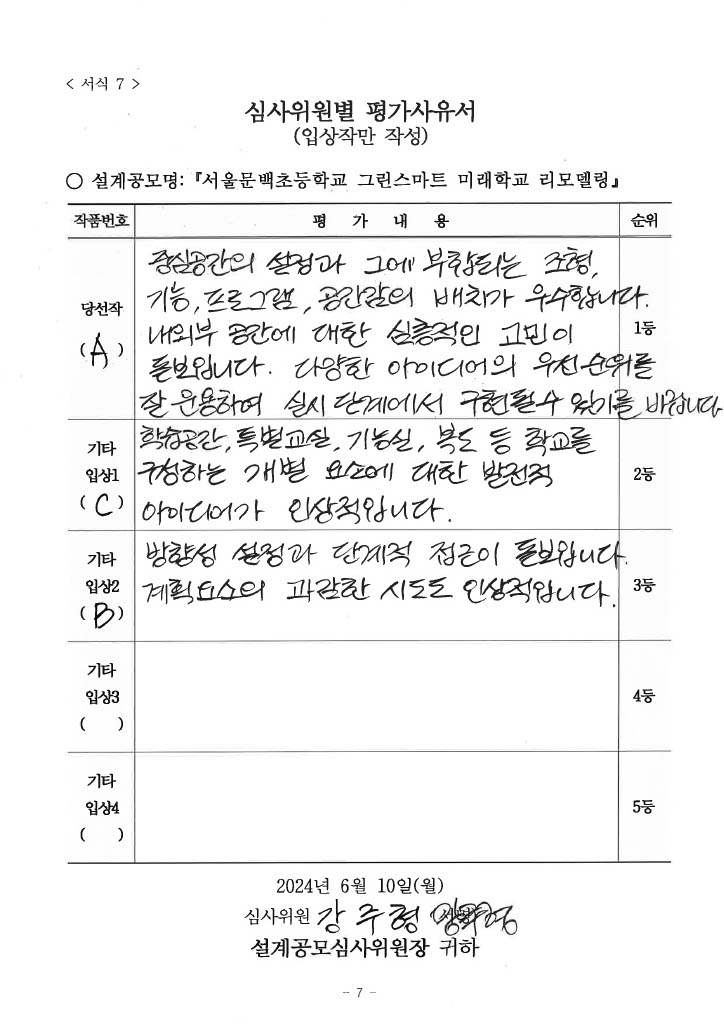 < 서식 7 >
심사위원별 평가사유서
(입상작만 작성)
○ 설계공모명: 『서울문백초등학교 그린스마트 미래학교 리모델링』
작품번호 평 가 내 용 순위
당선작
(A)
중심공간의 설정과 그에 부합되는 조형,
기능, 프로그램, 공간감의 배치가 우수합니다.
내외부 공간에 대한 심층적인 고민이
돋보입니다. 다양한 아이디어의 우선순위를
잘 운용하여 실시단계에서 구현될 수 있기를 바랍니다
1등
기타
입상1
(C)
학습공간, 특별교실, 기능실, 복도 등 학교를
구성하는 개별 요소에 대한 발전적
아이디어가 인상적입니다.
2등
기타
입상2
(B)
방향성 설정과 단계적 접근이 돋보입니다.
계획요소의 과감한 시도도 인상적입니다.
3등
기타
입상3
( )
4등
기타
입상4
( )
5등
2024년 6월 10일(월)
심사위원 강주형
설계공모심사위원장 귀하
- 7 -